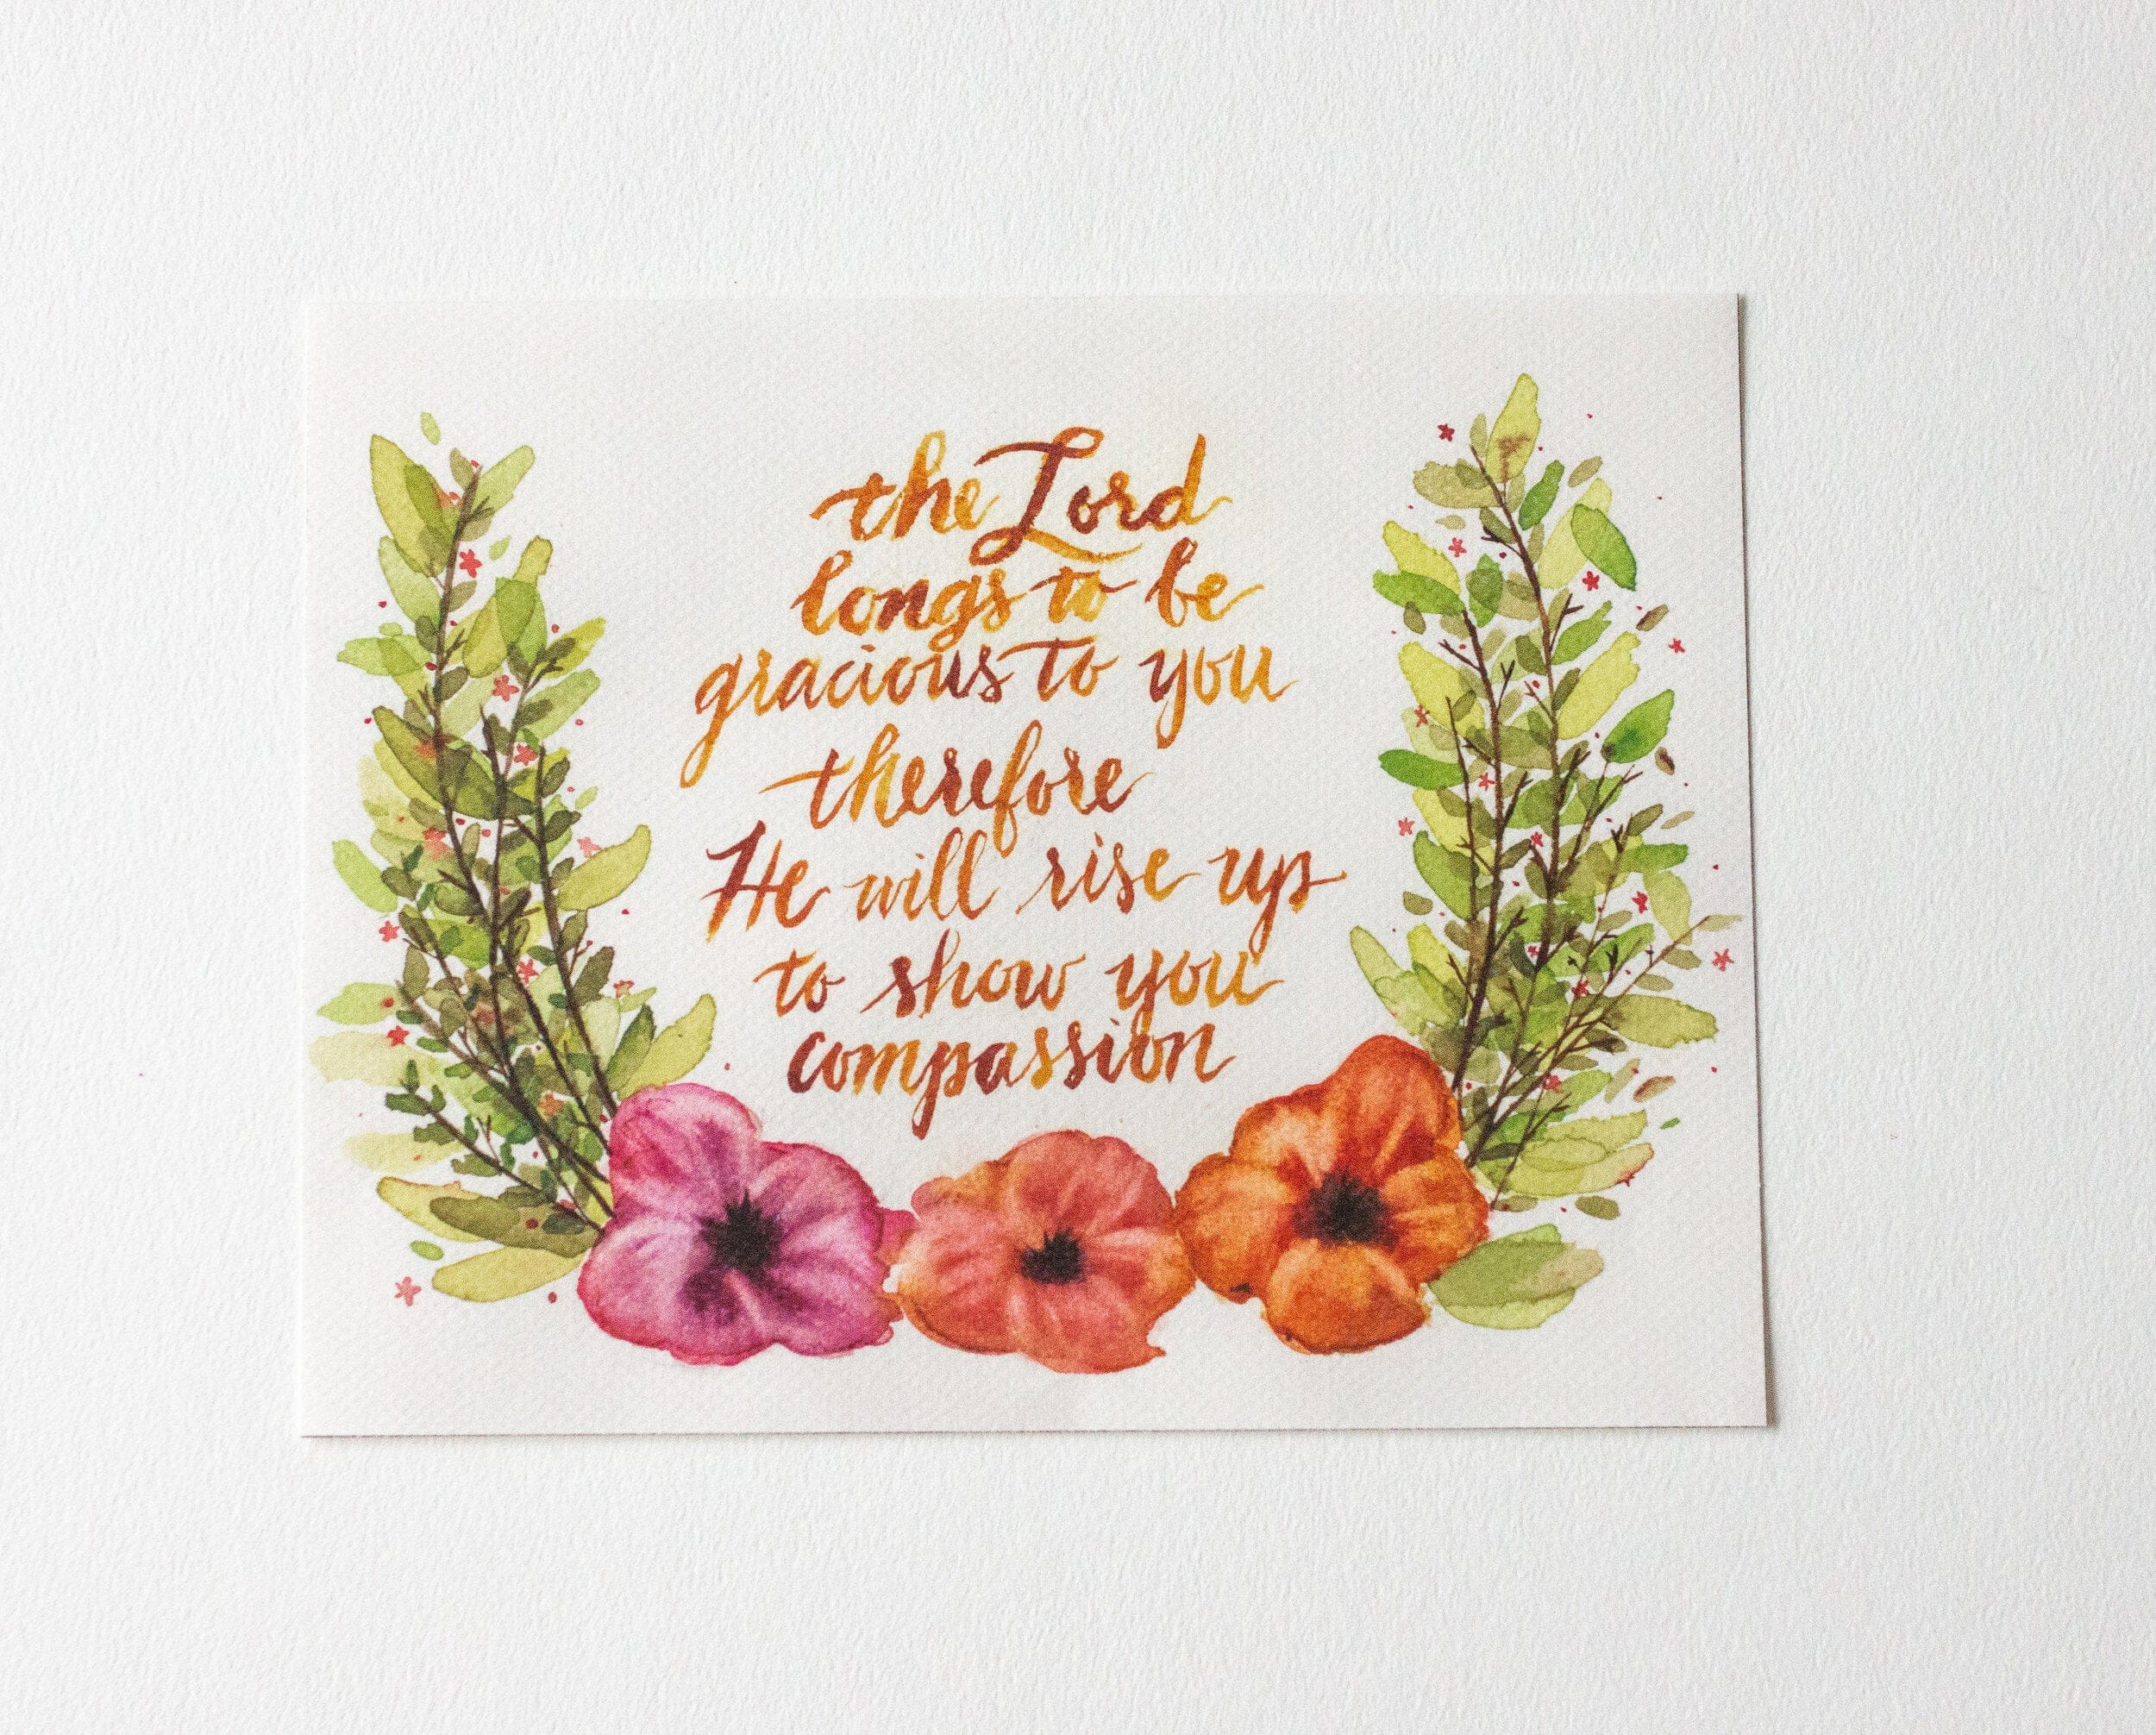 the Lord
longs to be
gracious to you
therefore
He will rise up
to show you
compassion